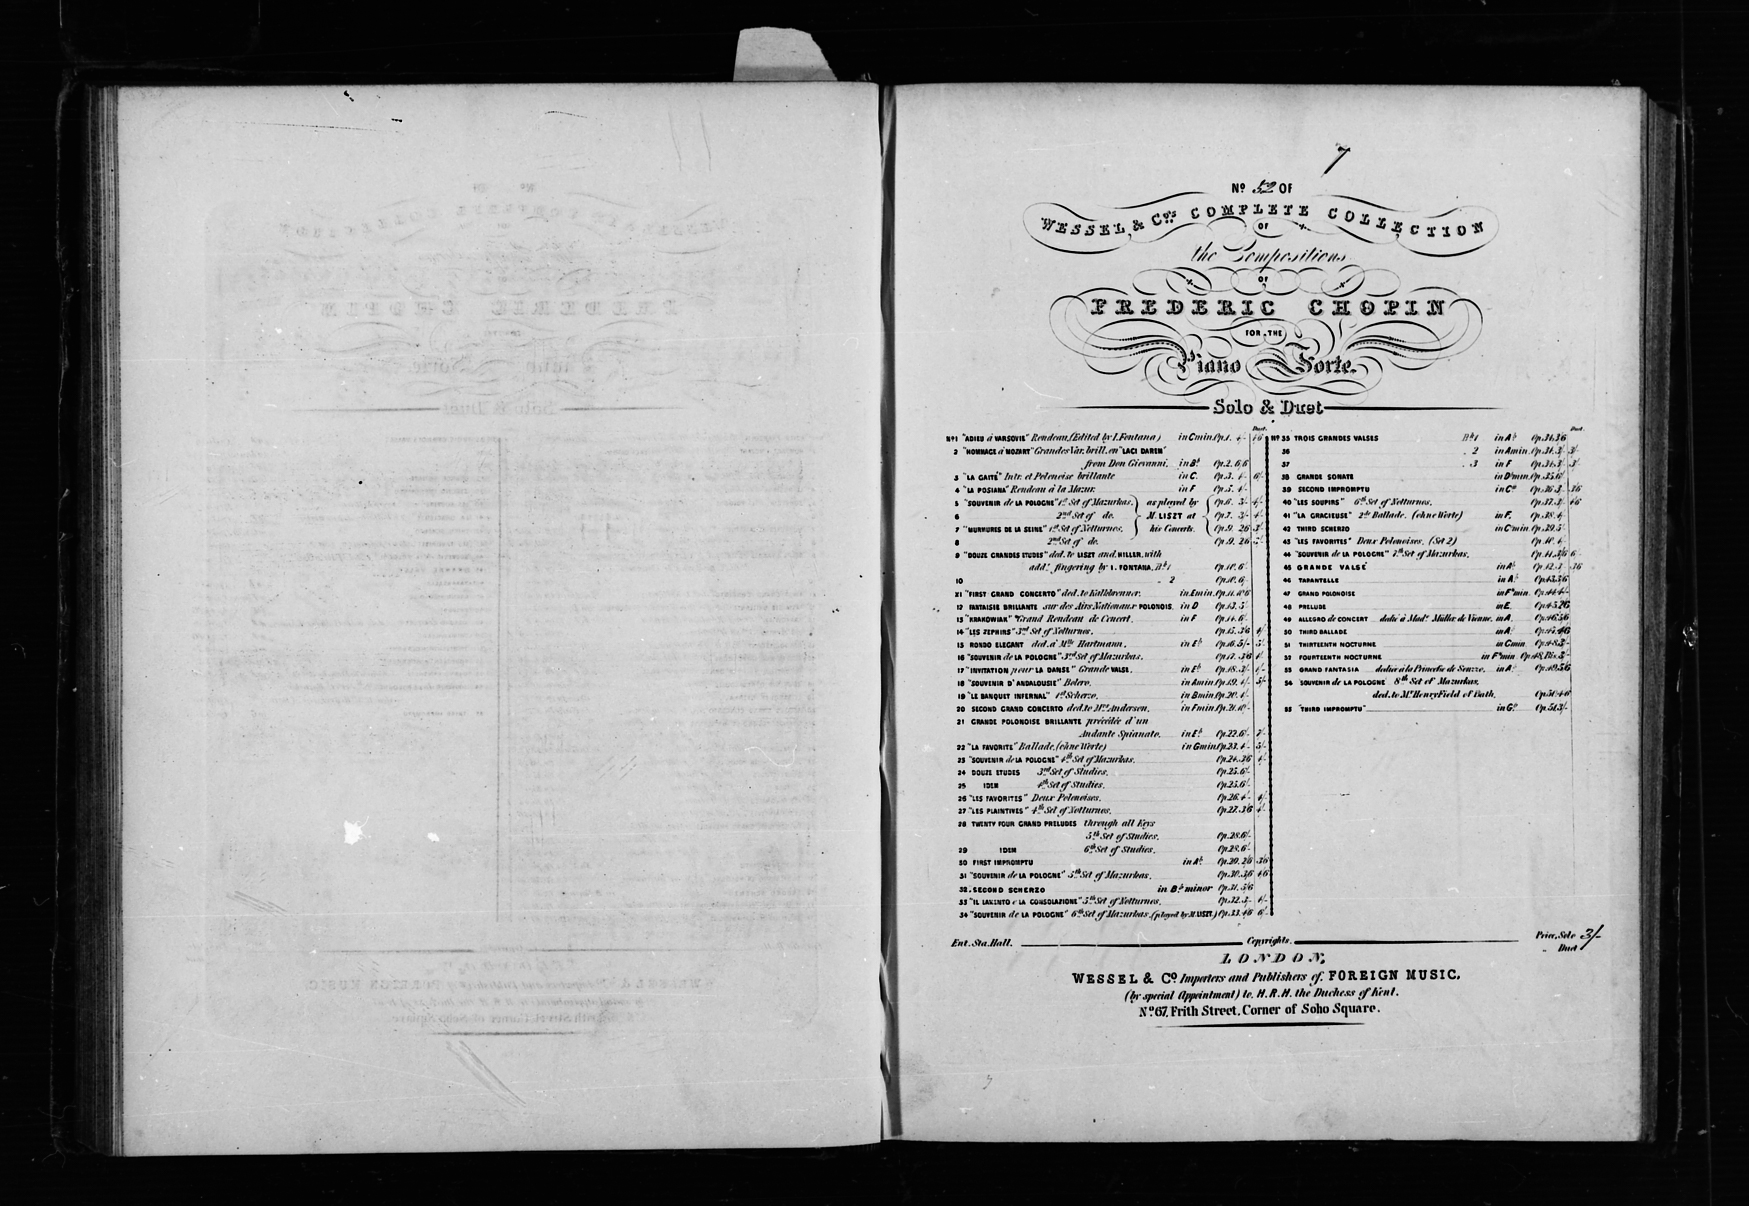 7
No. 52 OF
WESSEL & Co's. COMPLETE COLLECTION
OF
the Compositions
OF
FREDERIC CHOPIN
FOR THE
Piano Forte.
Solo & Duet
Duet.
No 1 "ADIEU à VARSOVIE" Rondeau, (Edited by I. Fontana) in C min. Op. 1. 4/-
2 "HOMMAGE à MOZART" Grandes Var. brill. on "LACI DAREM"
from Don Giovanni. in B♭ Op. 2. 6/6
3 "LA GAITÉ" Intr. et Polonoise brillante in C. Op. 3. 4/- 6/-
4 "LA POSIANA" Rondeau à la Mazur. in F Op. 5. 4/-
5 "SOUVENIR de LA POLOGNE" 1st Set of Mazurkas. as played by Op. 6. 3/- 4/-
6 2nd Set of do. M. LISZT at Op. 7. 3/- 4/-
7 "MURMURES DE LA SEINE" 1st Set of Notturnos. his Concerts. Op. 9. 2/6
8 2nd Set of do. Op. 9. 2/6
9 "DOUZE GRANDES ETUDES" ded. to LISZT and HILLER, with
add! fingering by I. FONTANA. Bk 1 Op. 10. 6/-
10 " 2 Op. 10. 6/-
11 "FIRST GRAND CONCERTO" ded. to Kalkbrenner. in E min. Op. 11.
12 FANTAISIE BRILLANTE sur des Airs Nationaux POLONOIS, in D Op. 13. 5/-
13 "KRAKOWIAK" Grand Rondeau de Concert. in F Op. 14. 6/-
14 "LES ZEPHIRS" 3rd Set of Notturnos. Op. 15. 3/6 4/-
15 RONDO ELEGANT ded. à Mlle Hartmann. in E♭ Op. 16. 5/-
16 "SOUVENIR de LA POLOGNE" 3rd Set of Mazurkas. Op. 17. 3/6 4/-
17 "INVITATION pour LA DANSE" Grande VALSE. in E♭ Op. 18. 3/- 4/-
18 "SOUVENIR D'ANDALOUSIE" Bolero. in A min. Op. 19. 4/- 5/-
19 "LE BANQUET INFERNAL" 1st Scherzo. in B min. Op. 20. 4/-
20 SECOND GRAND CONCERTO ded. to Mrs. Anderson. in F min. Op. 21.
21 GRANDE POLONOISE BRILLANTE précédée d'un
Andante Spianato. in E♭ Op. 22. 6/- 7/-
22 "LA FAVORITE" Ballade, (ohne Worte) in G min. Op. 23. 4/- 5/-
23 "SOUVENIR de LA POLOGNE" 4th Set of Mazurkas. Op. 24. 3/6 4/-
24 DOUZE ETUDES 3rd Set of Studies. Op. 25. 6/-
25 IDEM 4th Set of Studies. Op. 25. 6/-
26 "LES FAVORITES" Deux Polonoises. Op. 26. 4/- 4/-
27 "LES PLAINTIVES" 4th Set of Notturnos. Op. 27. 3/6 4/-
28 TWENTY FOUR GRAND PRELUDES through all Keys
5th Set of Studies. Op. 28. 6/-
29 IDEM 6th Set of Studies. Op. 28. 6/-
30 FIRST IMPROMPTU in A♭ Op. 29. 2/6 3/6
31 "SOUVENIR de LA POLOGNE" 5th Set of Mazurkas. Op. 30. 3/6 4/6
32. SECOND SCHERZO in B♭ minor Op. 31. 5/6
33 "IL LAMENTO e LA CONSOLAZIONE" 5th Set of Notturnos. Op. 32. 3/- 4/-
34 "SOUVENIR de LA POLOGNE" 6th Set of Mazurkas (played by M. LISZT.) Op. 33. 4/6 6/-
Duet.
No 35 TROIS GRANDES VALSES Bk 1 in A♭ Op. 34. 3/6
36 " 2 in A min. Op. 34. 3/- 3/-
37 " 3 in F Op. 34. 3/- 3/-
38 GRANDE SONATE Op. 35. 6/-
39 SECOND IMPROMPTU Op. 36. 3/- 3/6
40 "LES SOUPIRS" 6th Set of Notturnos. Op. 37. 3/- 4/6
41 "LA GRACIEUSE" 2de Ballade. (ohne Worte) in F. Op. 38. 4/-
42 THIRD SCHERZO in C♯ min. Op. 39. 5/-
43 "LES FAVORITES" Deux Polonoises. (Set 2) Op. 40. 4/-
44 "SOUVENIR de LA POLOGNE" 7th Set of Mazurkas. Op. 41. 3/6 6/-
45 GRANDE VALSE in A♭ Op. 42. 3/- 3/6
46 TARANTELLE in A♭ Op. 43. 3/6
47 GRAND POLONOISE in F♯ min. Op. 44. 4/-
48 PRELUDE in E. Op. 45. 2/6
49 ALLEGRO de CONCERT dedié à Madle. Müller de Vienne. in A. Op. 46. 5/6
50 THIRD BALLADE in A♭ Op. 47. 4/6
51 THIRTEENTH NOCTURNE in C min. Op. 48. 3/-
52 FOURTEENTH NOCTURNE in F♯ min. Op. 48. Bis. 3/-
53 GRAND FANTASIA dediée à la Princesse de Souzzo. in A♭ Op. 49. 5/6
54 "SOUVENIR de LA POLOGNE" 8th Set of Mazurkas,
ded. to Mr. Henry Field of Bath. Op. 50. 4/6
55 "THIRD IMPROMPTU" in G♭ Op. 51. 3/-
Ent. Sta. Hall. Copyrights. Price, Solo 3/-
" Duet
LONDON,
WESSEL & Co. Importers and Publishers of FOREIGN MUSIC.
(by special Appointment) to. H.R.H. the Duchess of Kent.
No. 67, Frith Street, Corner of Soho Square.